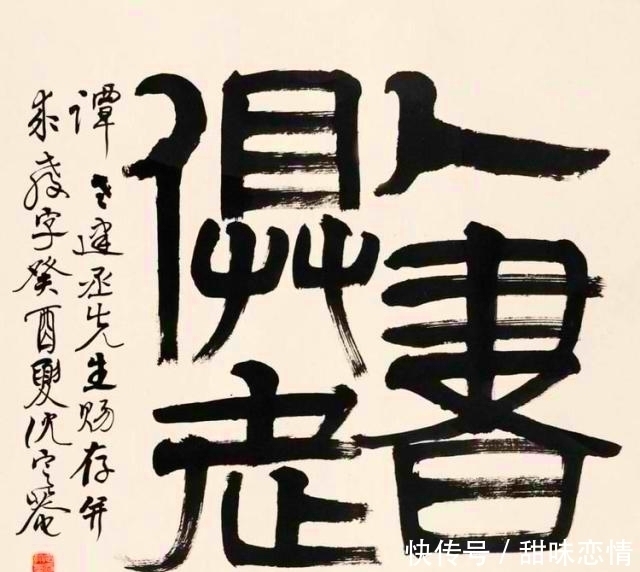 人書
俱老
譚老建丞先生賜存并
求教字癸酉夏沈定庵
快传号/甜味恋情